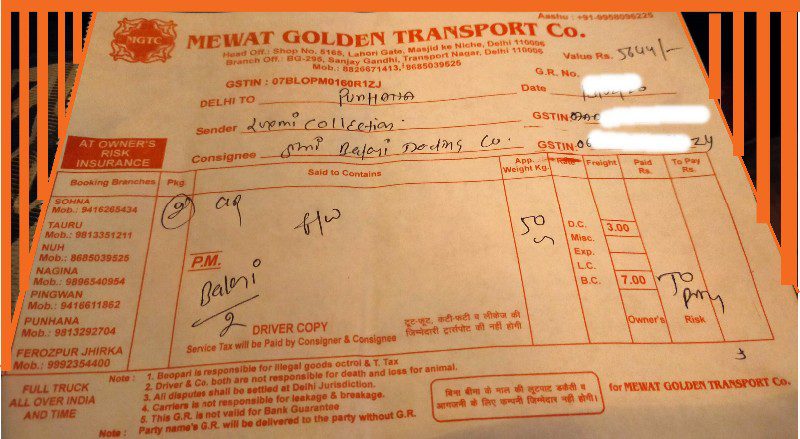 Aashu : +91-9958095225
MGTC
MEWAT GOLDEN TRANSPORT Co.
Head Off.: Shop No. 5165, Lahori Gate, Masjid ke Niche, Delhi 110006
Branch Off.: BG-295, Sanjay Gandhi, Transport Nagar, Delhi 110096
Mob.: 8826671413, 8685039525
Value Rs. 5644/-
GSTIN : 07BLOPM0160R1ZJ
G.R. No.
DELHI TO PUNHANA
Date
Sender Collection
GSTIN
Consignee Shri Balaji Trading Co.
GSTIN
AT OWNER'S
RISK
INSURANCE
Booking Branches Pkg. Said to Contains App. Weight Kg. Rate Freight Paid Rs. To Pay Rs.
SOHNA
Mob.: 9416265434
TAURU
Mob.: 9813351211
NUH
Mob.: 8685039525
NAGINA
Mob.: 9896540954
PINGWAN
Mob.: 9416611862
PUNHANA
Mob.: 9813292704
FEROZPUR JHIRKA
Mob.: 9992354400
2
50
P.M.
Balaji
2
D.C. 3.00
Misc.
Exp.
L.C.
B.C. 7.00
TO Pay
Owner's Risk
DRIVER COPY
Service Tax will be Paid by Consigner & Consignee
टूट-फूट, कटी-फटी व लीकेज की
जिम्मेदारी ट्रांसपोर्ट की नहीं होगी
FULL TRUCK
ALL OVER INDIA
AND TIME
Note : 1. Beopari is responsible for illegal goods octroi & T. Tax
2. Driver & Co. both are not responsible for death and loss for animal.
3. All disputes shall be settled at Delhi Jurisdiction.
4. Carriers is not responsible for leakage & breakage.
5. This G.R. is not valid for Bank Guarantee
Note : Party name's G.R. will be delivered to the party without G.R.
बिना बीमा के माल की लूटपाट डकैती व
आगजनी के लिए कम्पनी जिम्मेदार नहीं होगी।
for MEWAT GOLDEN TRANSPORT Co.